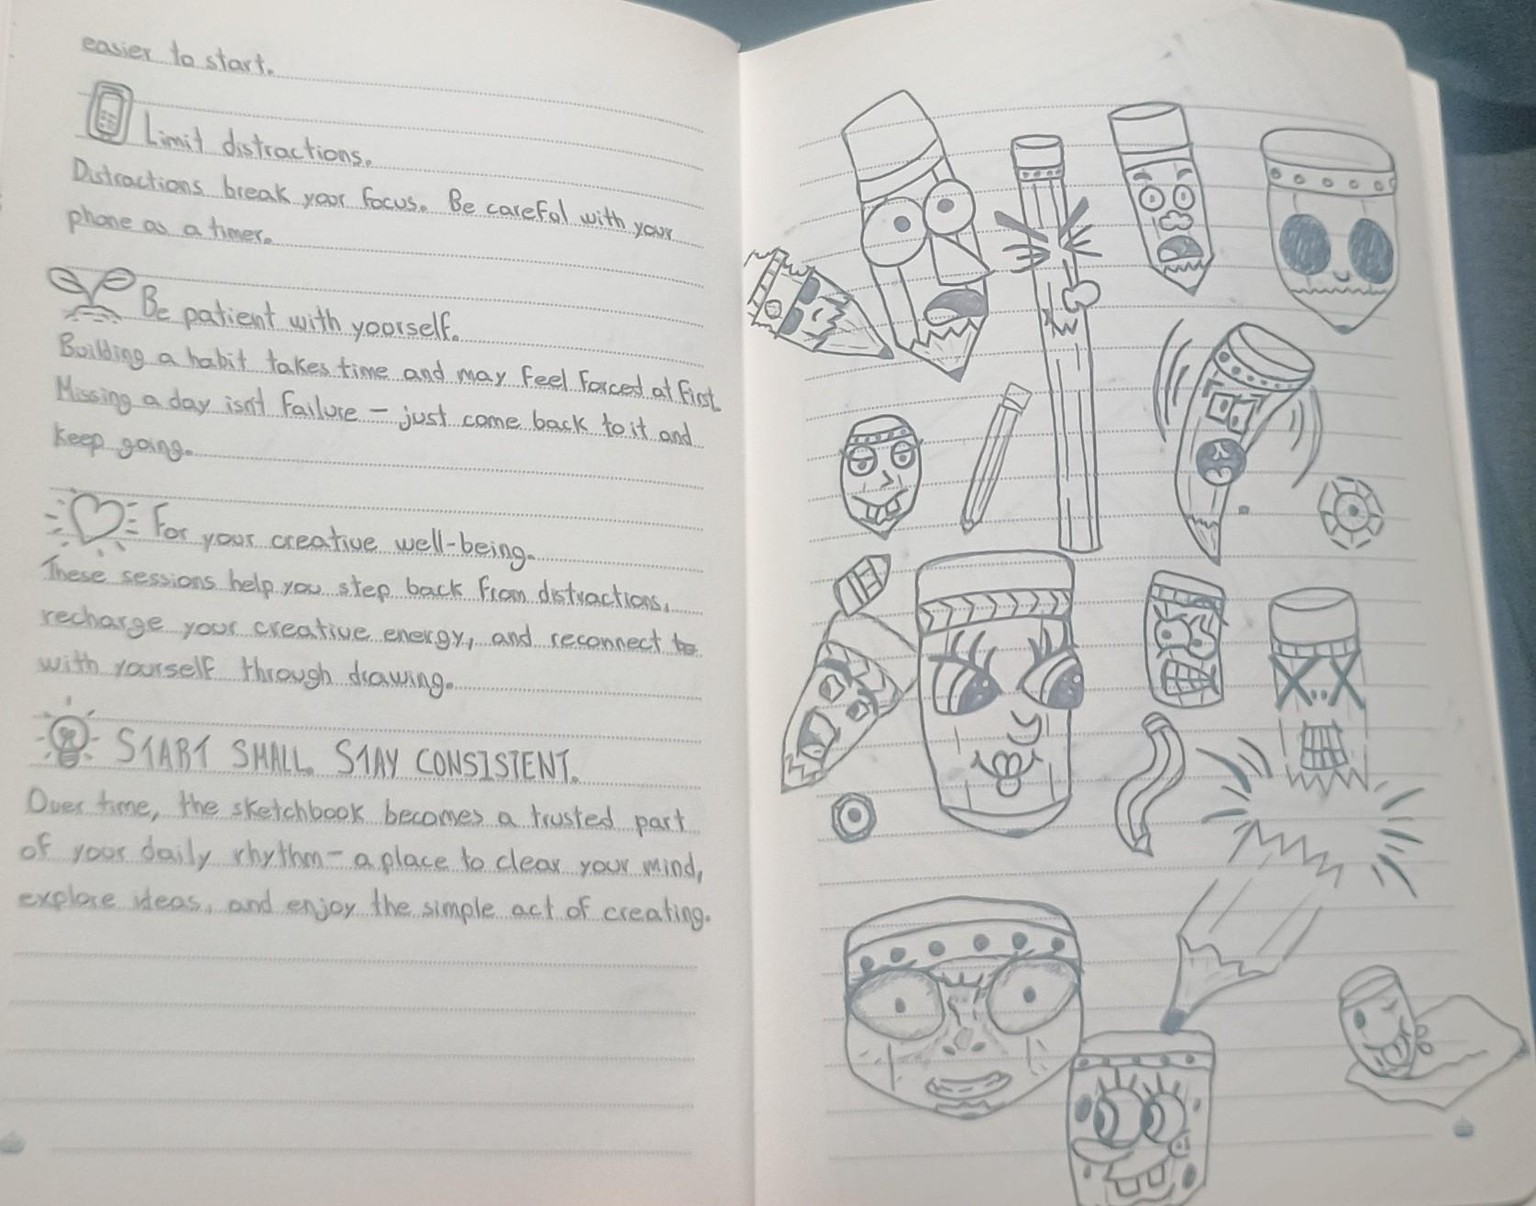 easier to start.
Limit distractions.
Distractions break your focus. Be careful with your
phone as a timer.
Be patient with yourself.
Building a habit takes time and may feel forced at first.
Missing a day isn't failure — just come back to it and
keep going.
For your creative well-being.
These sessions help you step back from distractions,
recharge your creative energy, and reconnect to
with yourself through drawing.
START SMALL. STAY CONSISTENT.
Over time, the sketchbook becomes a trusted part
of your daily rhythm — a place to clear your mind,
explore ideas, and enjoy the simple act of creating.